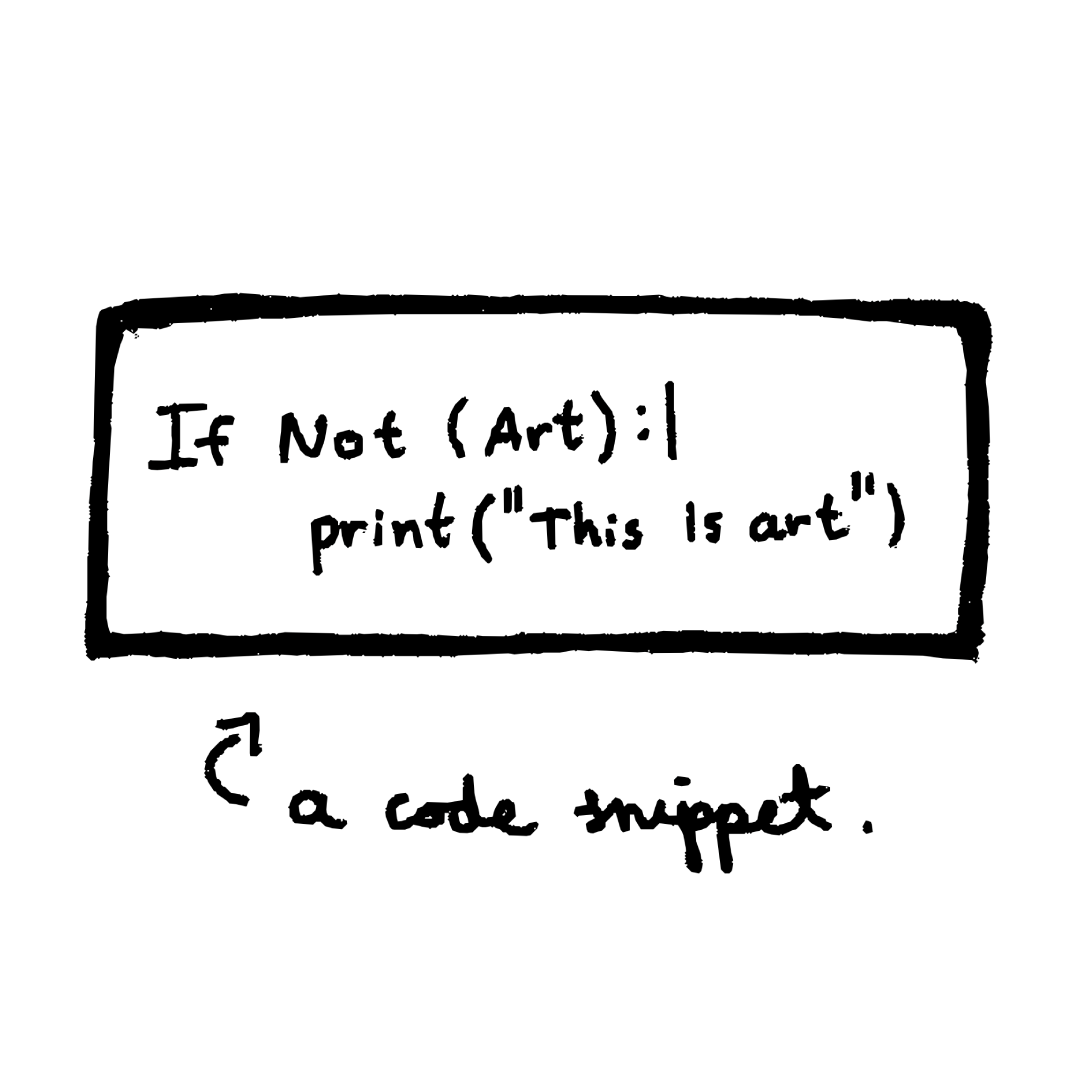 If Not (Art):|
print("This is art")
a code snippet.